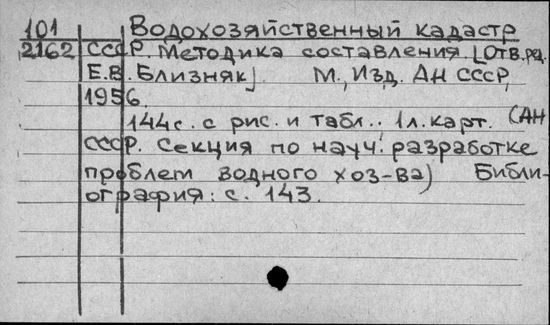 101 Водохозяйственный кадастр
2162 СССР. Методика составления. [Отв. ред.
Е.В. Близняк]. М., Изд. АН СССР,
1956.
144 с. с рис. и табл.; 1 л. карт. (АН
СССР. Секция по науч. разработке
проблем водного хоз-ва) Библи-
ография: с. 143.